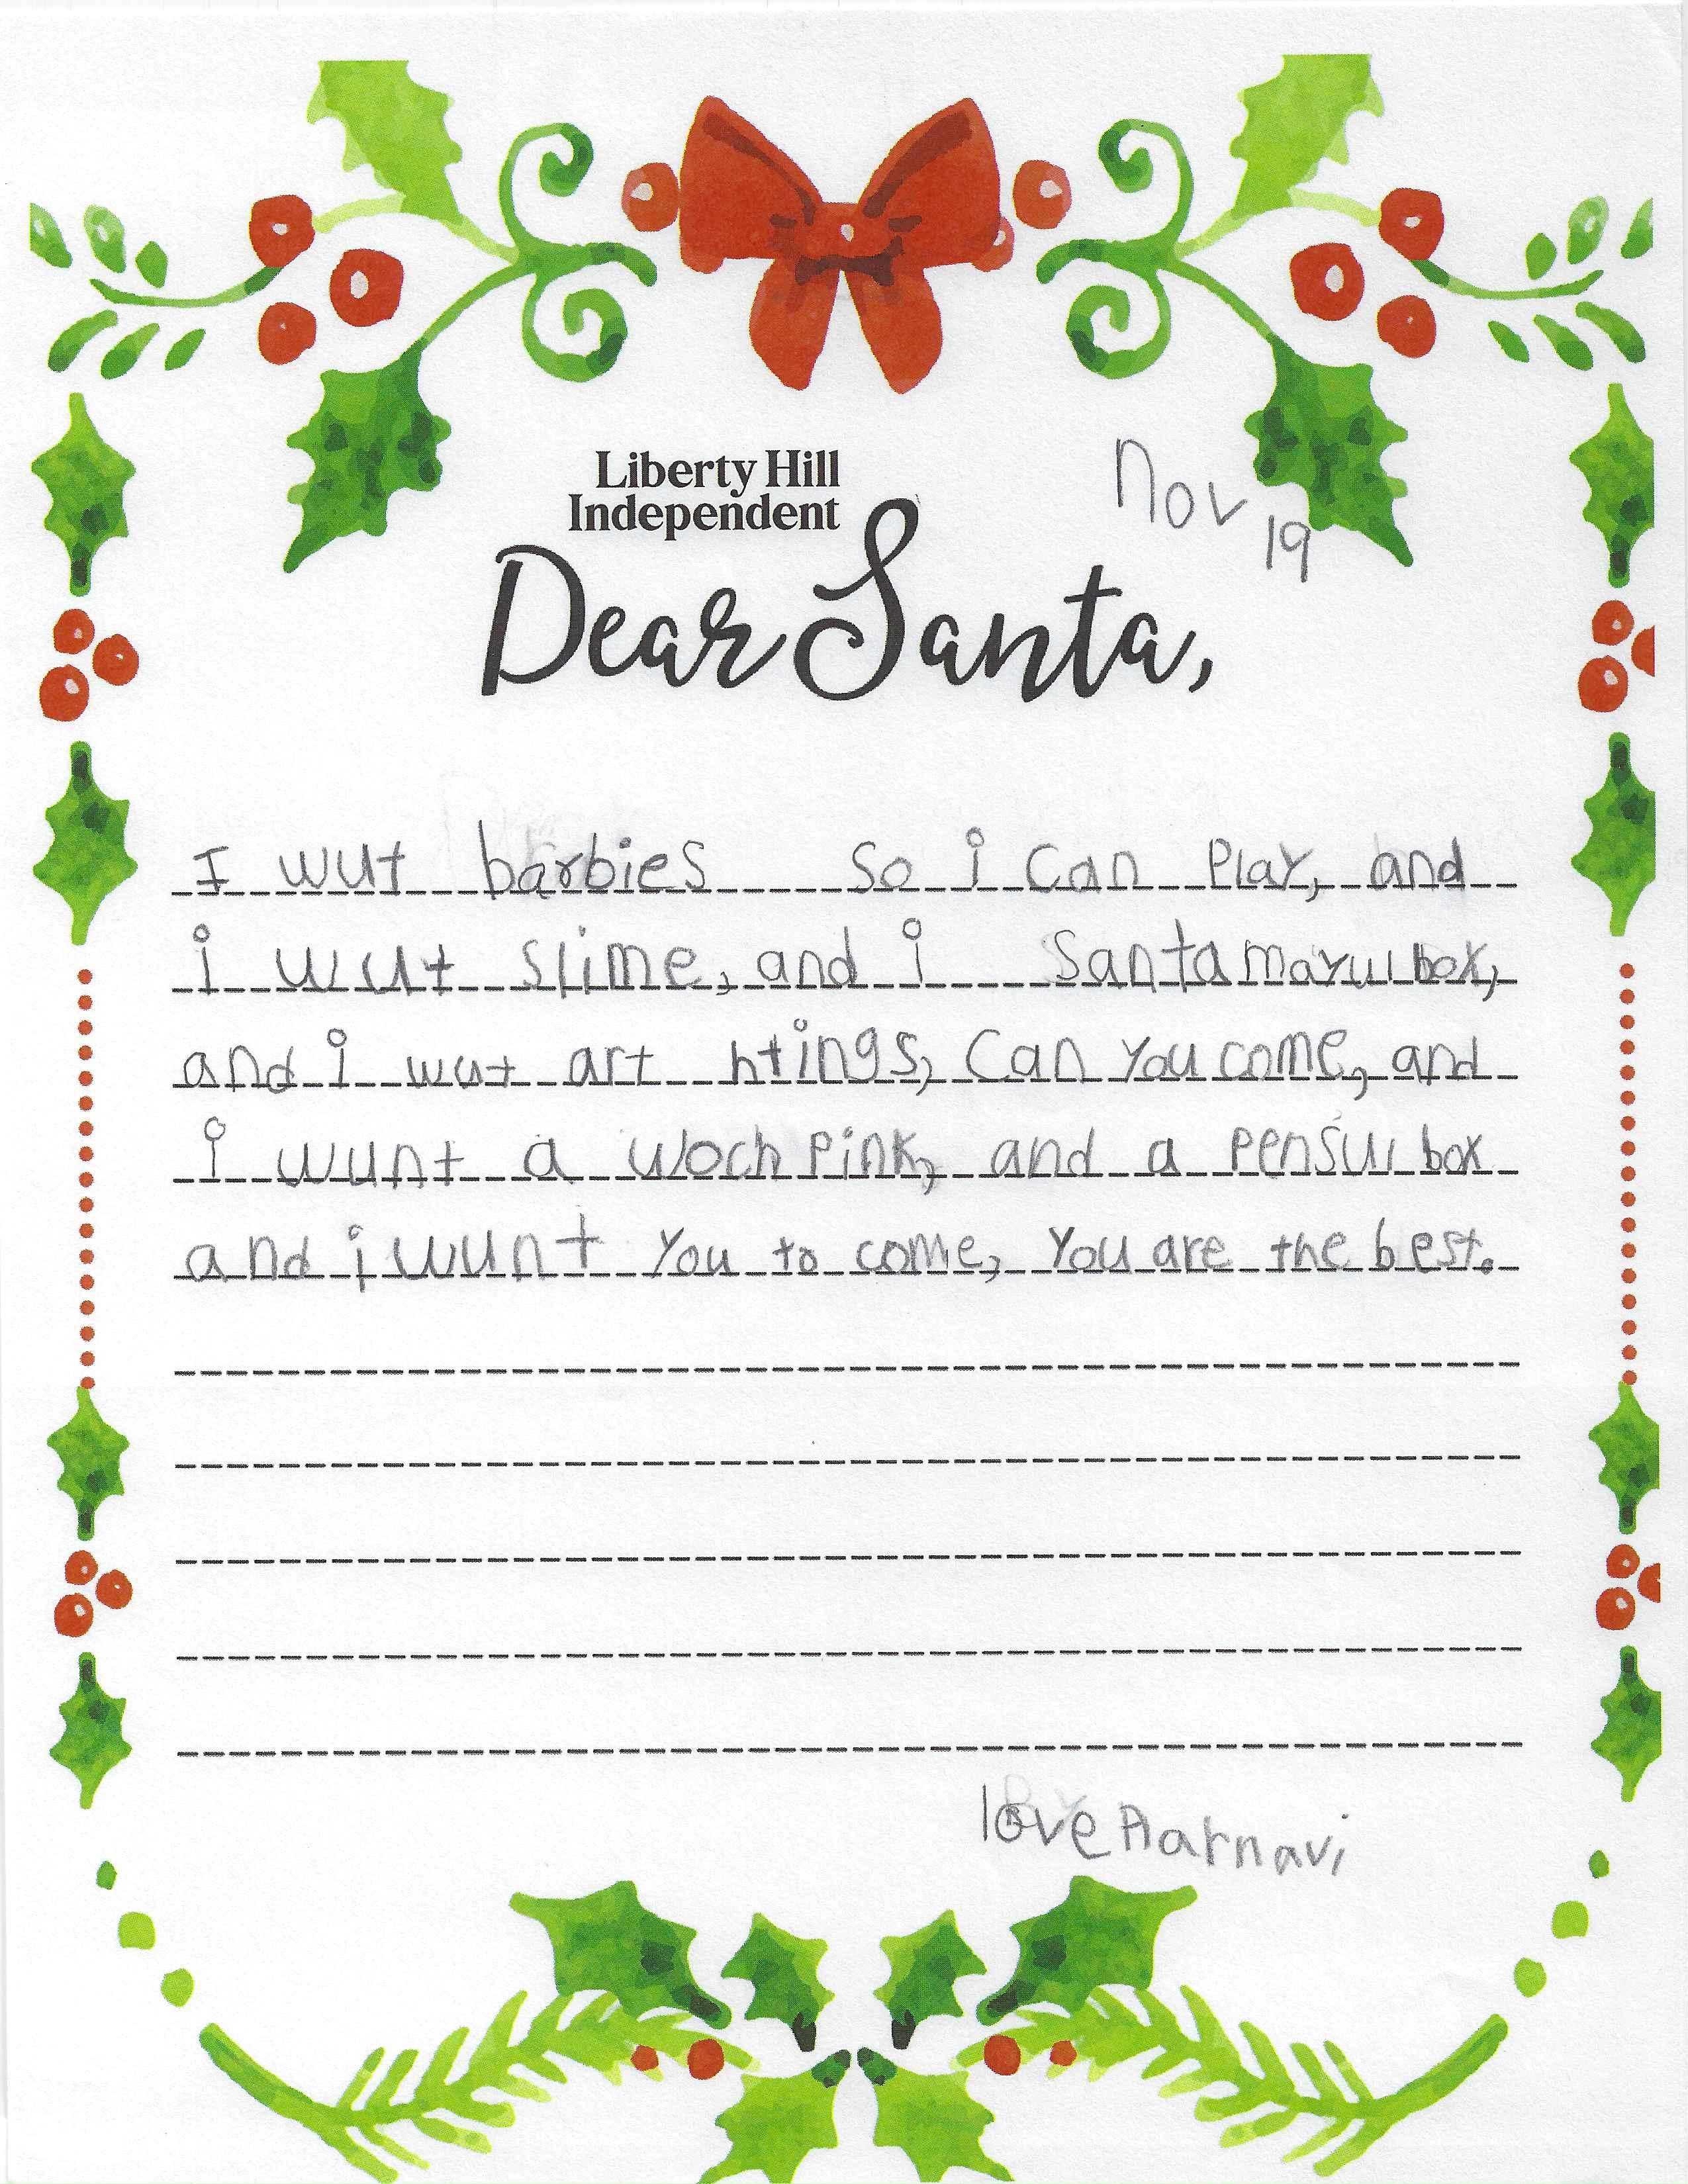 Liberty Hill
Independent
Nov 19
Dear Santa,
I wut barbies so i can Play, and
i wut slime, and i Santa maruul box,
and i wut art htings, Can You come, and
i wunt a woch Pink, and a Pensul box
and i wunt You to come, You are the best.
love Aarnavi